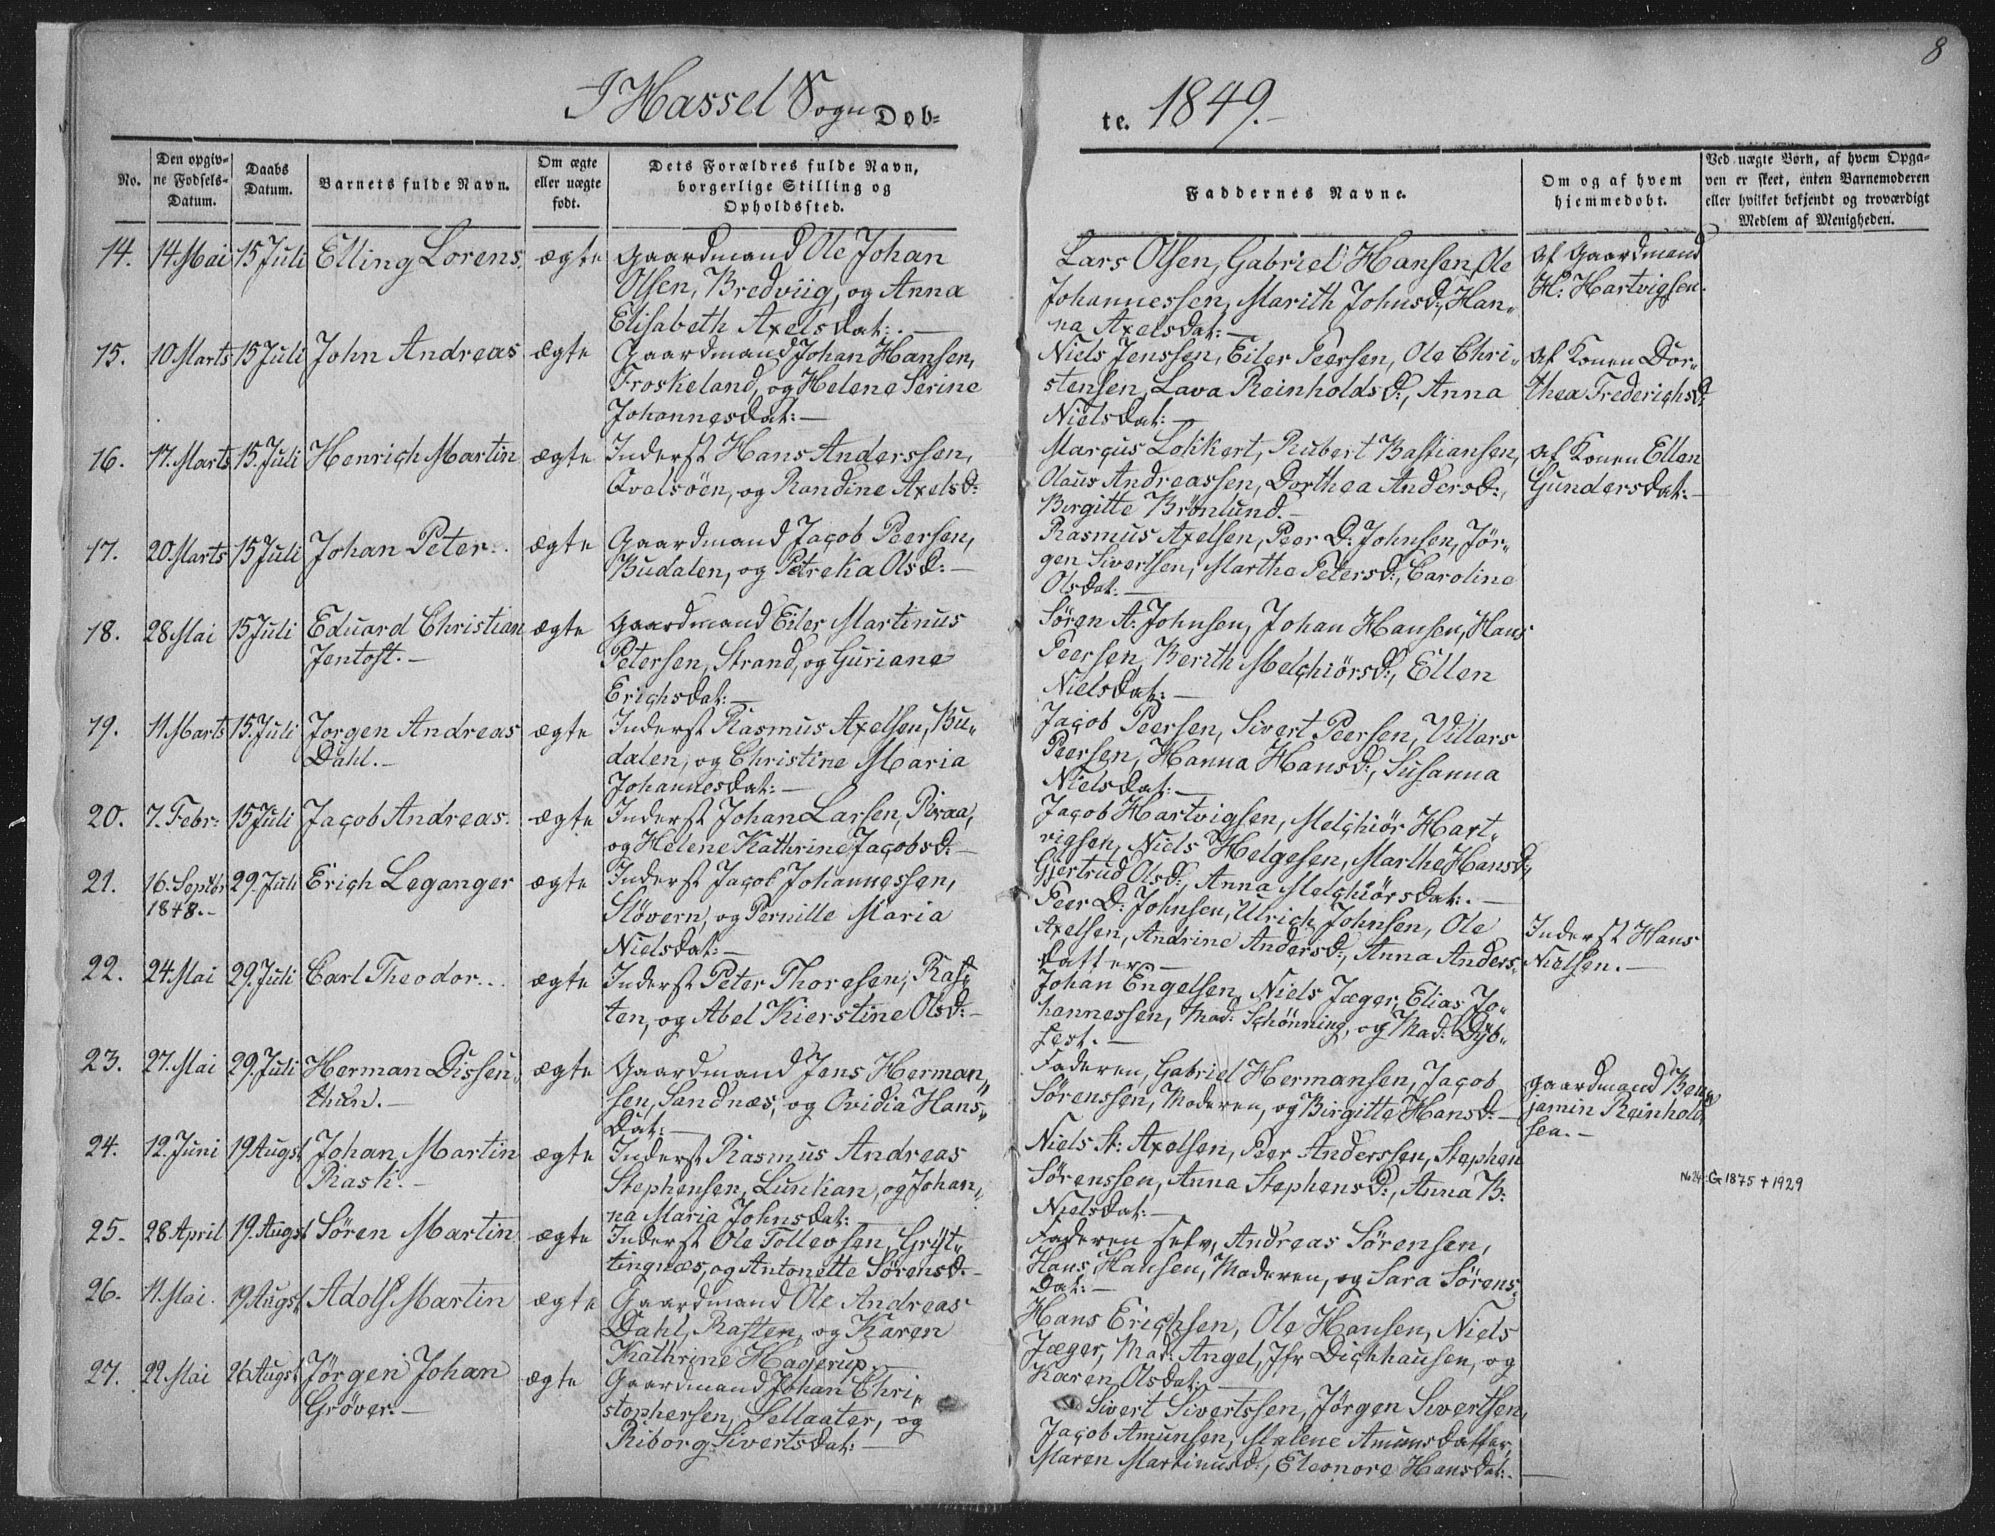 8
I Hassel Sogn Døb-
te. 1849.-
No.
Den opgiv-
ne Fødsels-
Datum.
Daabs
Datum.
Barnets fulde Navn.
Om ægte
eller uægte
født.
Dets Forældres fulde Navn,
borgerlige Stilling og
Opholdssted.
Faddernes Navne.
Om og af hvem
hjemmedøbt.
Ved uægte Børn, af hvem Opga-
ven er skeet, enten Barnemoderen
eller hvilket bekjendt og troværdigt
Medlem af Menigheden.
14. 14 Mai 15 Juli Elling Lorens. ægte Gaardmand Ole Johan
Olsen, Bredviig, og Anna
Elisabeth Axelsdat:.-
Lars Olsen, Gabriel Hansen, Ole
Johannessen, Marith Johnsd:, Han-
na Axelsdat:-
af Gaardmand
H: Hartvigsen.
15. 10 Marts 15 Juli John Andreas ægte Gaardmand Johan Hansen,
Froskeland, og Helene Serine
Johannesdat:-
Niels Jenssen, Eiler Peersen, Ole Chri-
stensen, Lava Reinholdsd:, Anna
Nielsdat:-
af Konen Dor-
thea Frederichsd:
16. 17. Marts 15. Juli Henrich Martin ægte Inderst Hans Anderssen,
Qvalsöen, og Randine Axelsd:
Marcus Lokkert, Rubert Bastiansen,
Olaus Andreassen, Dorthea Andersd:,
Birgitte Brönlund.-
af Konen Ellen
Gundersdat:-
17. 20 Marts 15 Juli Johan Peter.. ægte Gaardmand Jacob Peersen,
Budalen, og Petrika Olsd:-
Rasmus Axelsen, Peer D: Johnsen, Jör-
gen Sivertsen, Marthe Petersd:, Caroline
Olsdat:-
18. 28 Mai 15 Juli Eduard Christian
Jentoft.-
ægte Gaardmand Eiler Martinus
Petersen, Strand, og Guriane
Erichsdat:-
Sören A: Johnsen, Johan Hansen, Hans
Peersen, Berith Melchiörsd:, Ellen
Nielsdat:-
19. 11 Marts 15. Juli Jorgen Andreas
Dahl.-
ægte Inderst Rasmus Axelsen, Bu-
dalen, og Christine Maria
Johannesdat:-
Jacob Peersen, Sivert Peersen, Villars
Peersen, Hanna Hansd:, Susanna
Nielsdat:-
20. 7. Febr: 15 Juli Jacob Andreas. ægte Inderst Johan Larsen, Braa,
og Helene Kathrine Jacobsd:-
Jacob Hartvigsen, Melchiör Hart-
vigsen, Niels Helgesen, Marthe Hansd:,
Gjertrud Olsd:, Anna Melchiörsdat:.-
21. 16. Septbr
1848.-
29. Juli Erich Leganger ægte Inderst Jacob Johannessen,
Slövern, og Pernille Maria
Nielsdat:-
Peer D: Johnsen, Ulrich Johnsen, Ole
Axelsen, Andrine Andersd:, Anna Anders-
datter-
Inderst Hans
Nielsen.-
22. 24 Mai 29. Juli Carl Theodor... ægte Inderst Peter Thoresen, Raf-
ten, og Abel Kierstine Olsd:-
Johan Engelsen, Niels Jæger, Elias Jo-
hannessen, Mad: Schönning, og Mad: Dyb-
fest.-
23. 27. Mai 29. Juli Herman Dissen-
thun.-
ægte Gaardmand Jens Herman-
sen, Sandnæs, og Ovidia Hans-
dat:-
Faderen, Gabriel Hermansen, Jacob
Sörenssen, Moderen, og Birgitte Hansd:-
Gaardmand Ben-
jamin Reinhold-
sen.-
24. 12. Juni 19 Augst Johan Martin
Rask.-
ægte Inderst Rasmus Andreas
Stephensen, Lunkan, og Johan-
na Maria Johnsdat:-
Niels St: Axelsen, Peer Anderssen, Stephen
Sörenssen, Anna Stephensd:, Anna B:
Nielsdat:-
No 24: G 1875 + 1929
25. 28 April 19. Augst Sören Martin. ægte Inderst Ole Tollevsen, Gryt-
tingnæs, og Antonette Sörensd:-
Faderen selv, Andreas Sörensen,
Hans Hansen, Moderen, og Sara Sörens-
dat:-
26. 11 Mai. 19 Augst Adolf Martin ægte Gaardmand Ole Andreas
Dahl, Raften, og Karen
Kathrine Hagerup.-
Hans Erichsen, Ole Hansen, Niels
Jæger, Mad: Angel, Jfr Dichhausen, og
Karen Olsdat:-
27. 22 Mai 26 Augst Jörgen Johan
Gröver.-
ægte Gaardmand Johan Chri-
stophersen, Sellaater, og
Riborg Sivertsdat:-
Sivert Sivertssen, Jörgen Sivertsen,
Jacob Amunsen, Malene Amunsdatter,
Maren Martinusd:, Eleonore Hansdat:.-